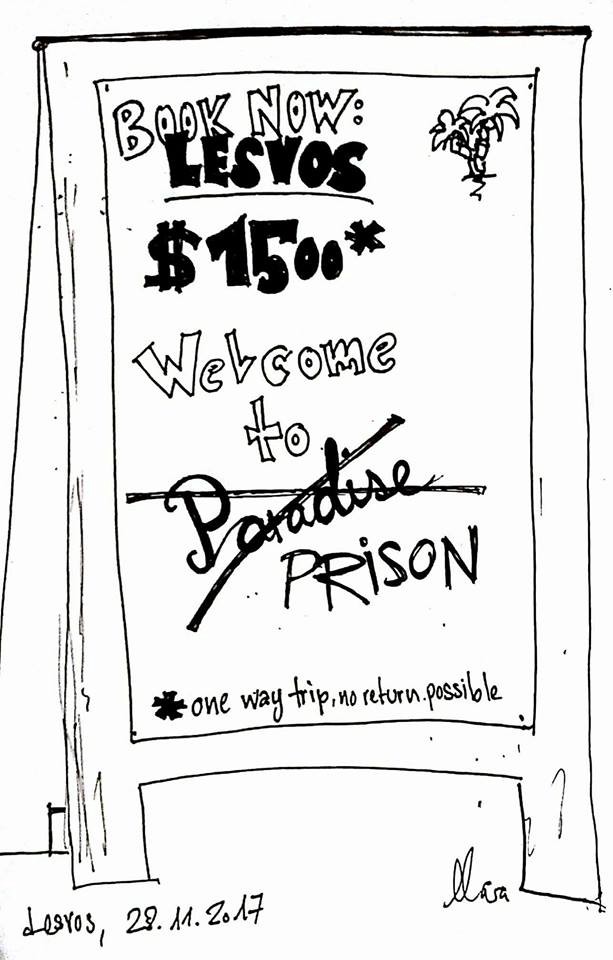 BOOK NOW:
LESVOS
$1500*
Welcome
to
Paradise
PRiSON
* one way trip, no return possible
Lesvos, 28.11.2017
Mara